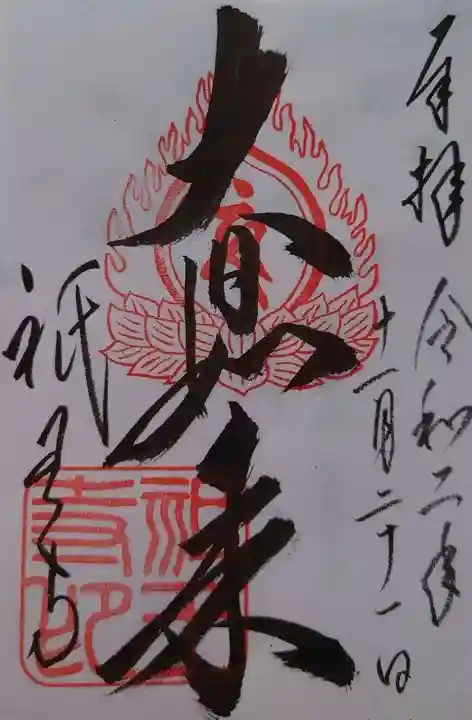 奉拝 令和二年
十一月二十一日
大日如来
祇王寺
祇王
寺印